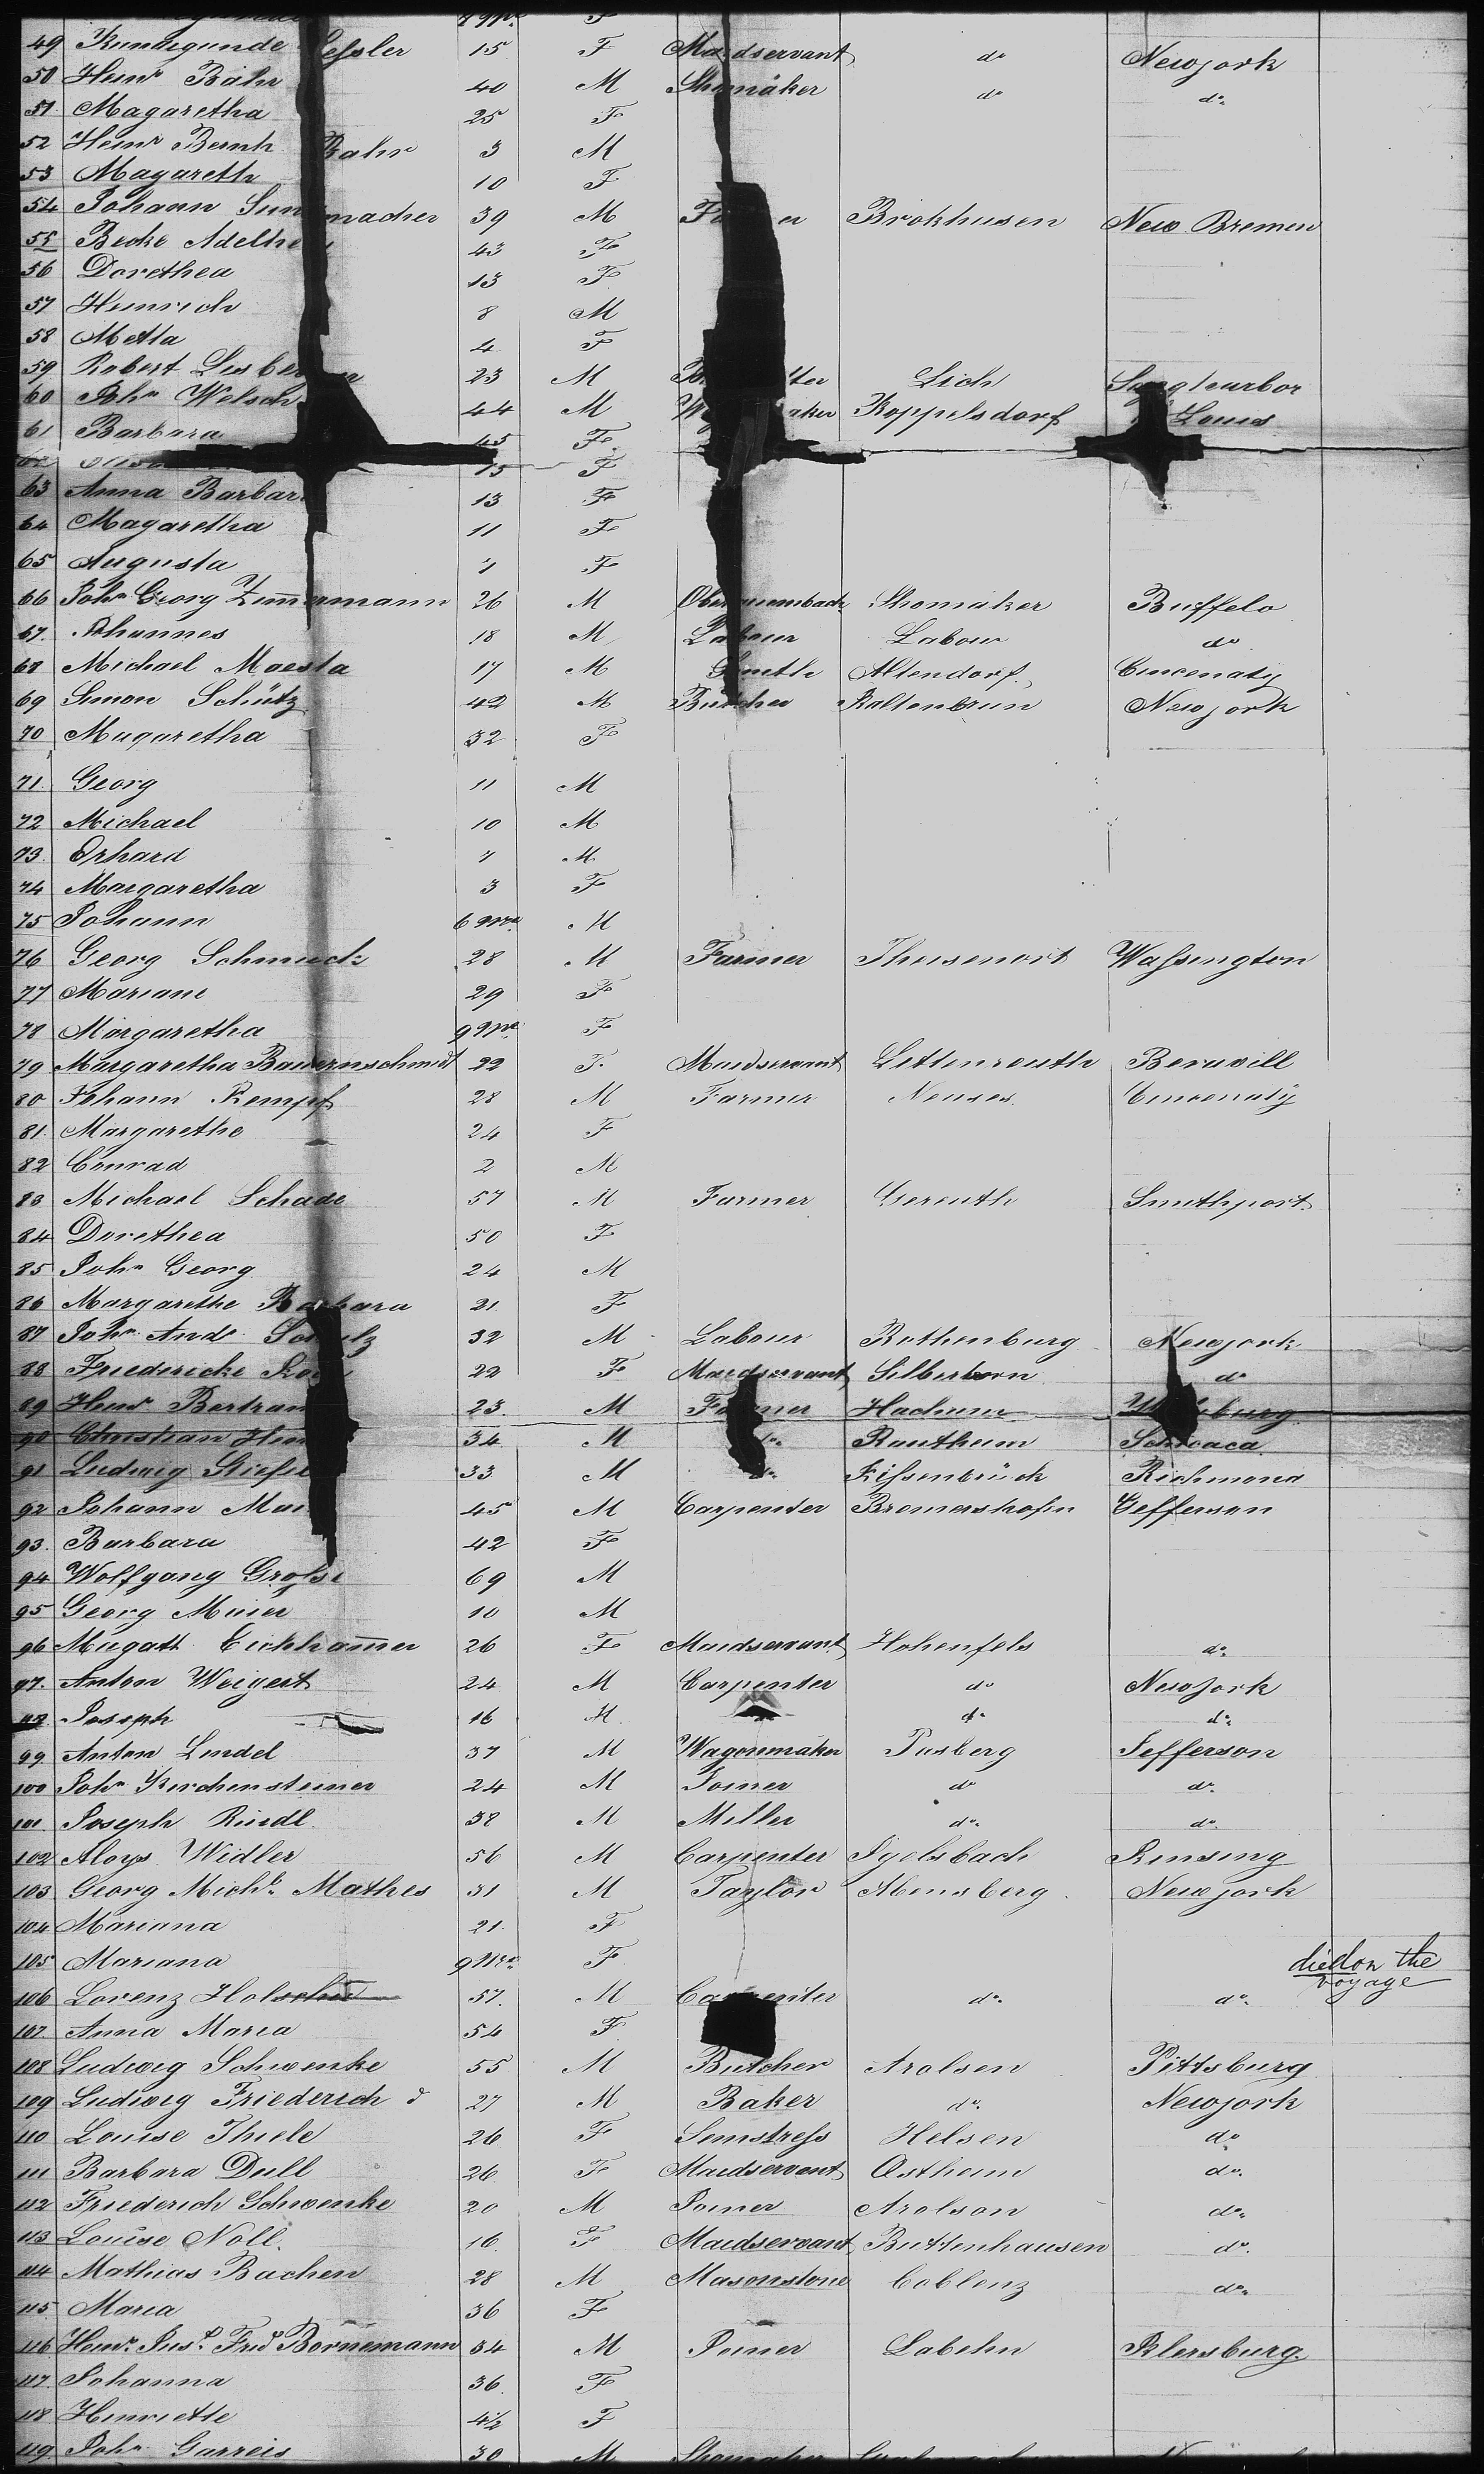 49 Kunnegunde Fessler 15 F Maidservant do Newjork
50 Heinr Bähr 40 M Shomäker do do
51 Magaretha 25 F
52 Heinr Bernh Bahr 3 M
53 Magareth 10 F
54 Johann macher 39 M Brokhusen New Bremen
55 Becke Adelh 43 F
56 Dorethea 13 F
57 Heinrich 8 M
58 Metta 4 F
59 Robert 23 M Lich
60 John Welsch 44 M Koppelsdorf Louis
61 Barbara 45 F
15 F
63 Anna Barbara 13 F
64 Magaretha 11 F
65 Augusta 7 F
66 John Georg Zimmermann 26 M Shomaker Buffelo
67 Johannes 18 M Labour Labour do
68 Michael Maesta 17 M Smith Altendorf Cincenaty
69 Simon Schütz 42 M Butcher Kaltenbrun Newjork
70 Magaretha 32 F
71 Georg 11 M
72 Michael 10 M
73 Erhard 7 M
74 Margaretha 3 F
75 Johann 6 M
76 Georg Schmuck 28 M Farmer Theisenort Wassington
77 Mariane 29 F
78 Margaretha 9 F
79 Margaretha Bauernschmidt 22 F Maidservant Lettenreuth
80 Johann Kempf 28 M Farmer Neuses Cincenaty
81 Margarethe 24 F
82 Conrad 2 M
83 Michael Schade 57 M Farmer Gereuth Smithport
84 Dorethea 50 F
85 John Georg 24 M
86 Margarethe Barbara 21 F
87 John Andr Schulz 32 M Labour Rothenburg Newjork
88 Friedericke 22 F Maidservant Silberborn do
89 Heinr Bertram 23 M Farmer Hachum
90 Christian 34 M do Rautheim
91 Ludwig Stiefel 33 M do Kissenbrück Richmond
92 Johann 45 M Carpenter Bremershofen Jefferson
93 Barbara 42 F
94 Wolfgang Grosse 69 M
95 Georg Maier 10 M
96 Magatt Eichhammer 26 F Maidservant Hohenfels do
97 Anton Weigert 24 M Carpenter do Newjork
98 Joseph 16 M do do
99 Anton Lindel 37 M Wagonmaker Pasberg Jefferson
100 John Kirchensteiner 24 M Joiner do do
101 Joseph Riedl 38 M Miller do do
102 Aloys Widler 56 M Carpenter Igelsbach Kensing
103 Georg Michl Mathes 31 M Taylor Abensberg Newjork
104 Mariana 21 F
105 Mariana 9 F died on the
voyage
106 Lorenz 57 M Carpenter do do
107 Anna Maria 54 F
108 Ludwig Schwenke 55 M Butcher Arolsen Pittsburg
109 Ludwig Friederich do 27 M Baker do Newjork
110 Louise Thiele 26 F Semstress Helsen do
111 Barbara Dull 26 F Maidservant Ostheim do
112 Friederich Schwenke 20 M Joiner Arolson do
113 Louise Noll 16 F Maidservant Buttenhausen do
114 Mathias Bachen 28 M Masonstone Coblenz do
115 Maria 36 F
116 Heinr Just Frid Bornemann 34 M Joiner Labehn
117 Johanna 36 F
118 Henriette 4½ F
119 John Garreis 30 M Shomaker